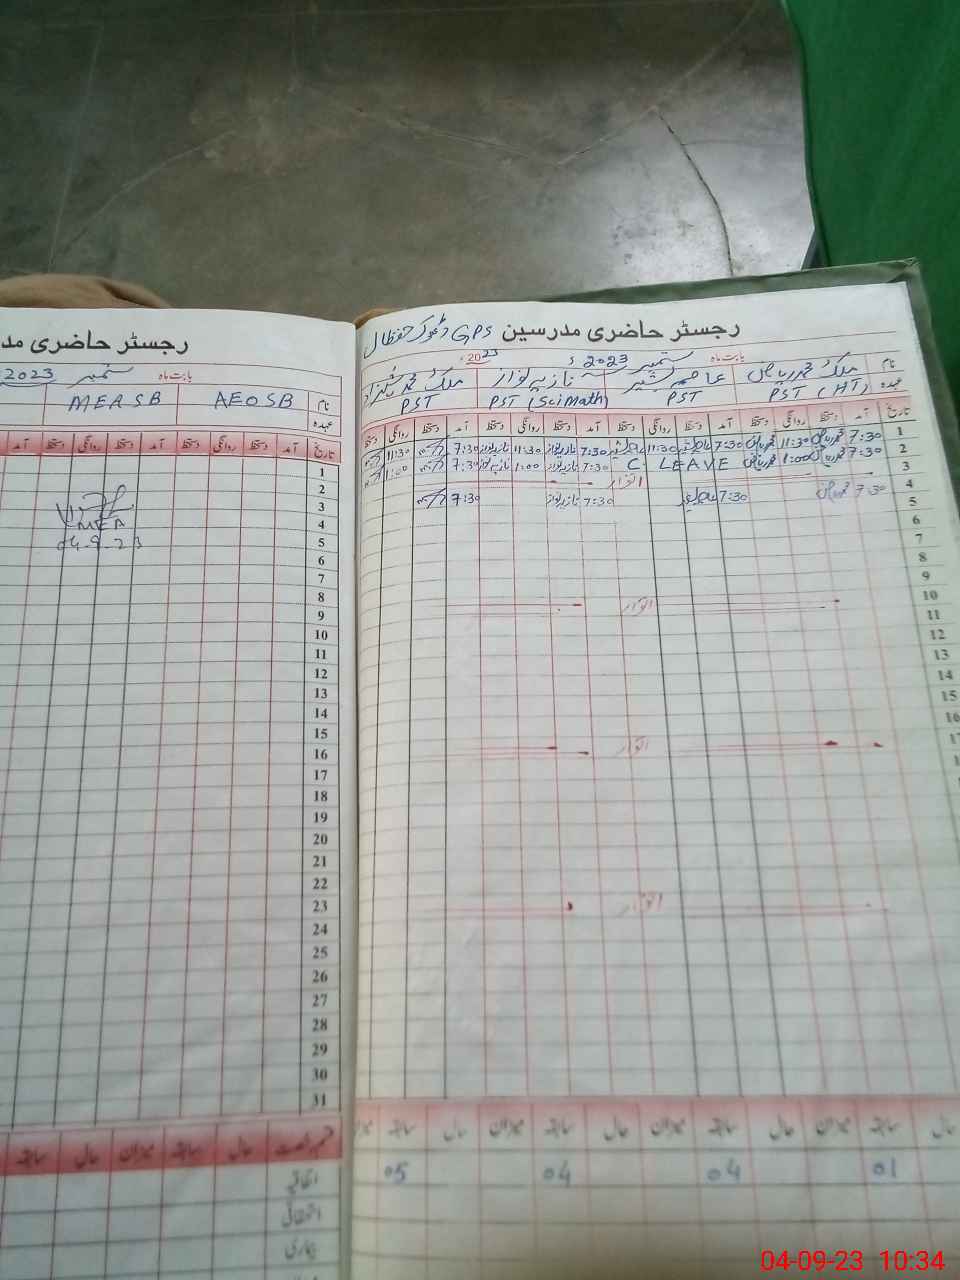 رجسٹر حاضری مدرسین GPS ڈھوک حفظال
بابت ماہ ستمبر 2023ء 2023ء
نام ملک محمد ریاض عاصم بشیر نازیہ نواز ملک محمد
عہدہ PST (HT) PST PST (Sci Math) PST
تاریخ آمد دستخط روانگی دستخط آمد دستخط روانگی دستخط آمد دستخط روانگی دستخط آمد دستخط روانگی دستخط
1 7:30 محمد ریاض 11:30 محمد ریاض 7:30 11:30 7:30 نازیہ نواز 11:30 نازیہ نواز 7:30 11:30
2 7:30 محمد ریاض 1:00 محمد ریاض C. LEAVE 7:30 نازیہ نواز 1:00 نازیہ نواز 7:30 1:00
3 اتوار
4 7:30 محمد ریاض 7:30 7:30 نازیہ نواز 7:30
5
6
7
8
9
10 اتوار
11
12
13
14
15
16
17 اتوار
اتوار
حال سابقہ میزان حال سابقہ میزان حال سابقہ میزان حال سابقہ
01 04 04 05
رجسٹر حاضری
بابت ماہ ستمبر 2023
نام AEO SB MEA SB
عہدہ
تاریخ آمد دستخط روانگی دستخط آمد دستخط روانگی دستخط آمد
1
2
3
4 MEA
5 04-9-23
6
7
8
9
10
11
12
13
14
15
16
17
18
19
20
21
22
23
24
25
26
27
28
29
30
31
حال سابقہ میزان حال سابقہ
اتفاقیہ
استحقاقی
بیماری
04-09-23 10:34